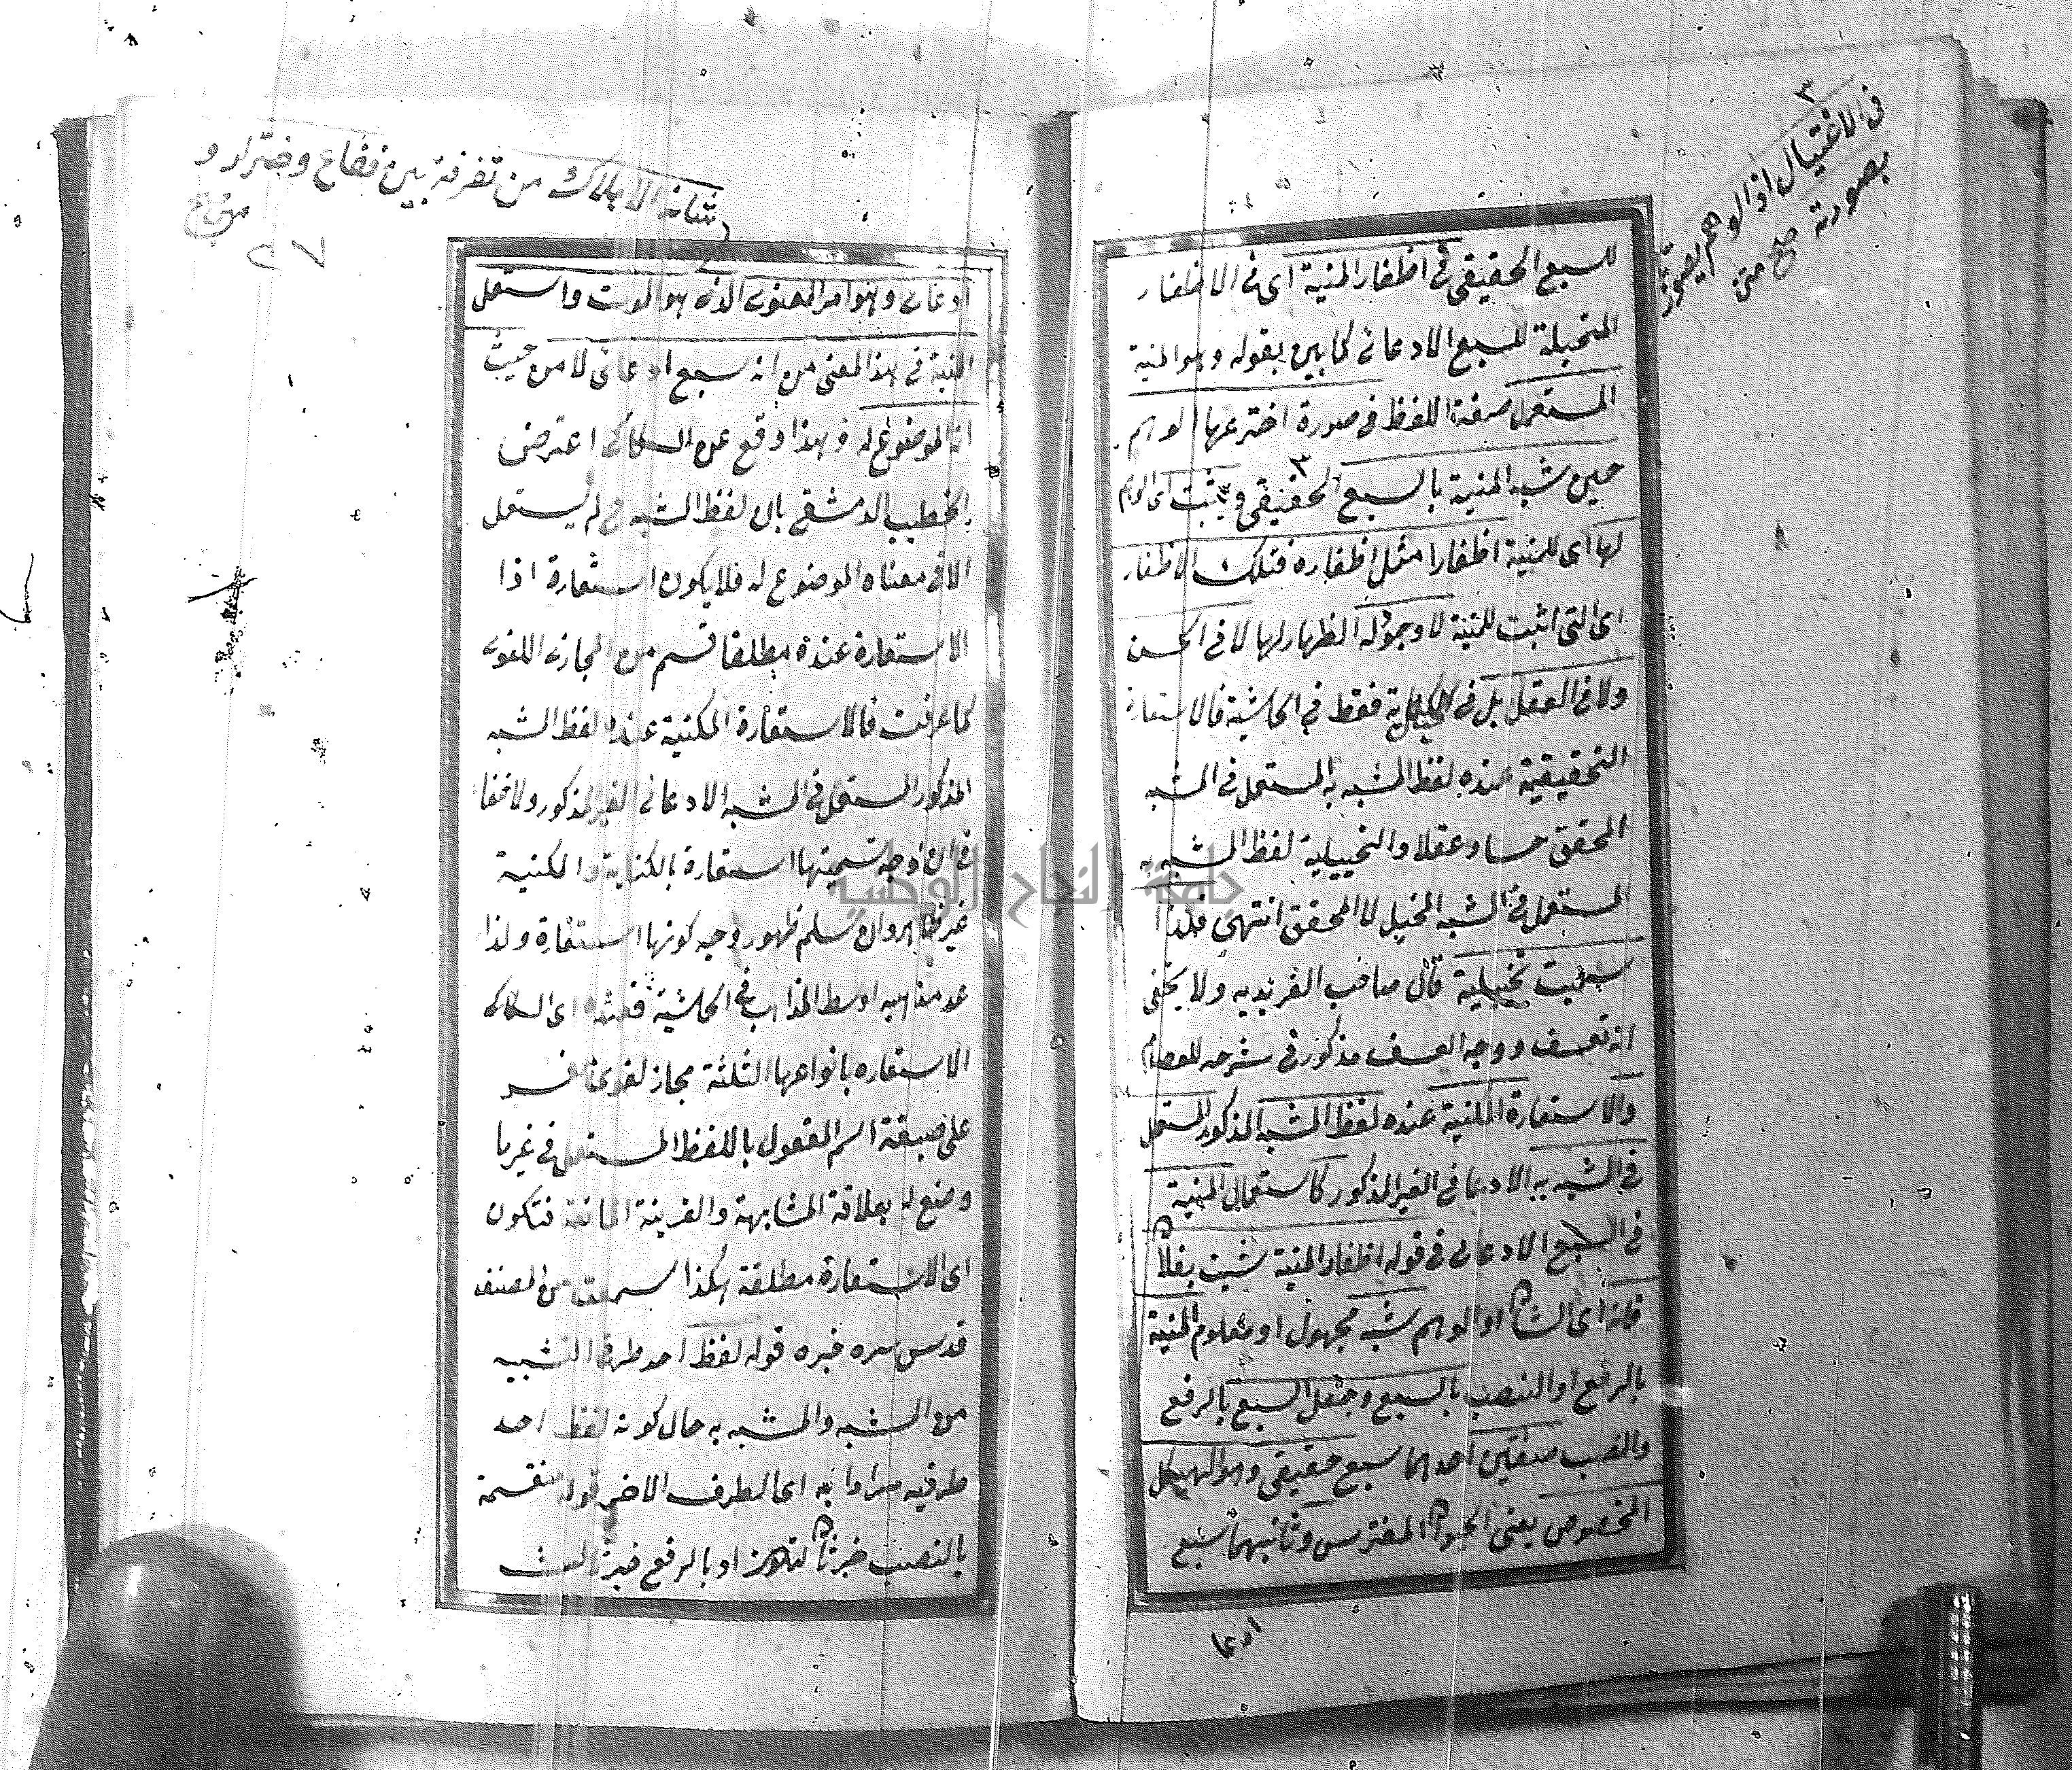 في الاغتيال اذ الوهم يصوّر
بصورته صح منه
للسبع الحقيقي في اظفار المنية اى في الاظفار
المتخيلة للسبع الادعائى كما بين بقوله وهو المنية
المستعمل صفة اللفظ في صورة اخترعها الوهم
حين شبه المنية بالسبع الحقيقي ويثبت اى الوهم
لها اى للمنية اظفارا مثل اظفاره فتلك الاظفار
اى التى اثبت للمنية لا وجود لها لا في الحس
ولا في العقل بل في فقط في الحاشية فالاستعارة
التحقيقية عنده لفظ المشبه به المستعمل في المشبه
المحقق حسا وعقلا والتخييلية لفظ المشبه به
المستعمل في المشبه المخيل لا المحقق انتهى فلذا
سميت تخييلية قال صاحب الفريديه ولا يخفى
انه تعسف ووجه العسف مذكور في شرحه للعصام
والاستعارة المكنية عنده لفظ المشبه المذكور المستعمل
في المشبه به الادعائى الغير المذكور كاستعمال المنية
في السبع الادعائى في قوله اظفار المنية نشبت بفلان
فانه اى الشان او الوهم شبه مجهول او معلوم المنية
بالرفع او النصب بالسبع وجعل السبع بالرفع
والنصب صنفين احدهما سبع حقيقي وهو الهيكل
المخصوص يعنى الحيوان المفترس وثانيهما سبع
ادعا
شانه الاهلاك من تفرقة بين نفاع وضرّار و
٢٧
ادعائى وهو امر المعنوى الذى هو الموت واستعمل
المنية في هذا المعنى من انه سبع ادعائى لا من حيث
انه الموضوع له وبهذا وقع عن السكاكى اعترض
الخطيب الدمشقى بان لفظ المشبه لم يستعمل
الا في معناه الموضوع له فلا يكون استعارة اذا
الاستعارة عنده مطلقا قسم من المجازى اللغوى
كما عرفت فالاستعارة المكنية عنده لفظ المشبه
المذكور المستعمل في المشبه الادعائى الغير المذكور ولا خفاء
في ان وجه تسميتها استعارة بالكناية والمكنية
غير ظاهر وان سلم ظهور وجه كونها استعارة ولذا
عد مذهبه اوسط المذاهب في الحاشية فعنده اى السكاكى
الاستعاره بانواعها الثلثة مجاز لغوى مفسر
على صيغة اسم المفعول باللفظ المستعمل في غير ما
وضع له بعلاقة المشابهة والقرينة المانعة فتكون
اى الاستعارة مطلقة هكذا سمعت من المصنف
قدس سره خبره قوله لفظ احد طرفى التشبيه
من المشبه والمشبه به حال كونه لفظ احد
طرفيه مرادا به اى الطرف الاخر قوله منقسمة
بالنصب خبر ثان لتكون او بالرفع خبر ثالث